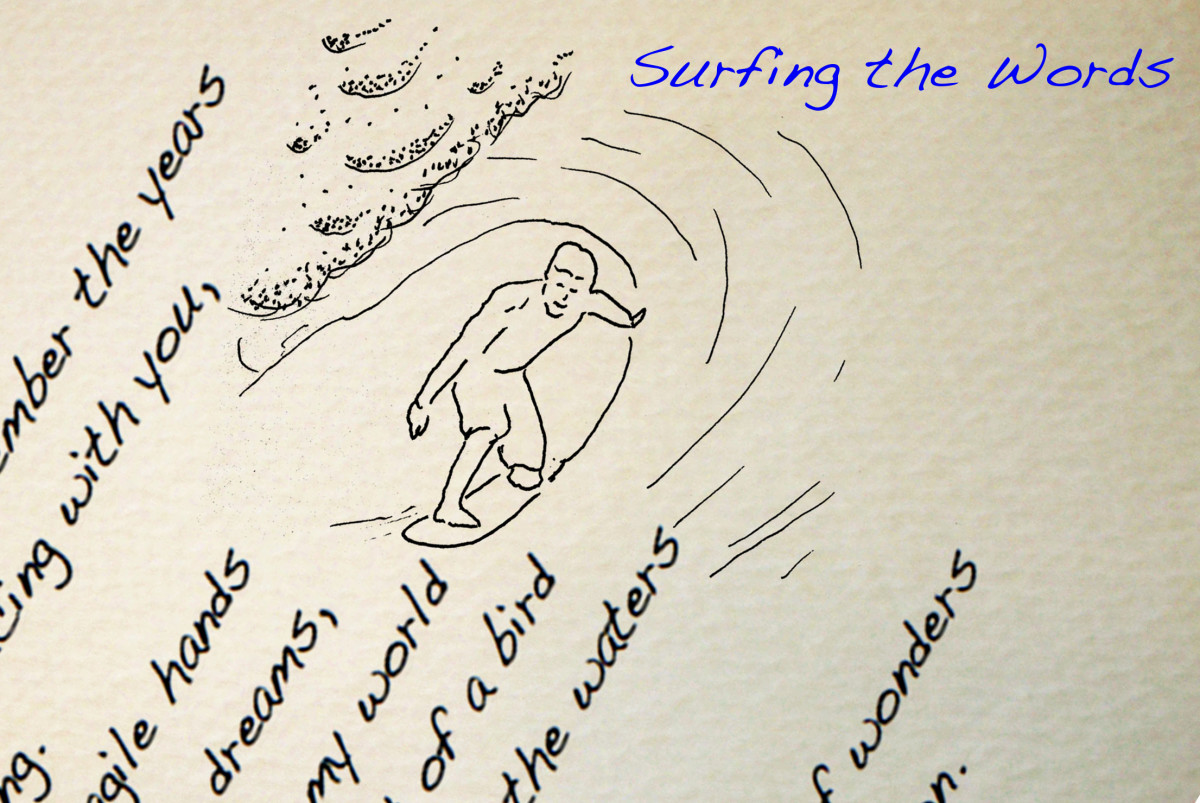 Surfing the Words
ember the years
ing with you,
ng.
gile hands
dreams,
my world
of a bird
the waters
f wonders
n.